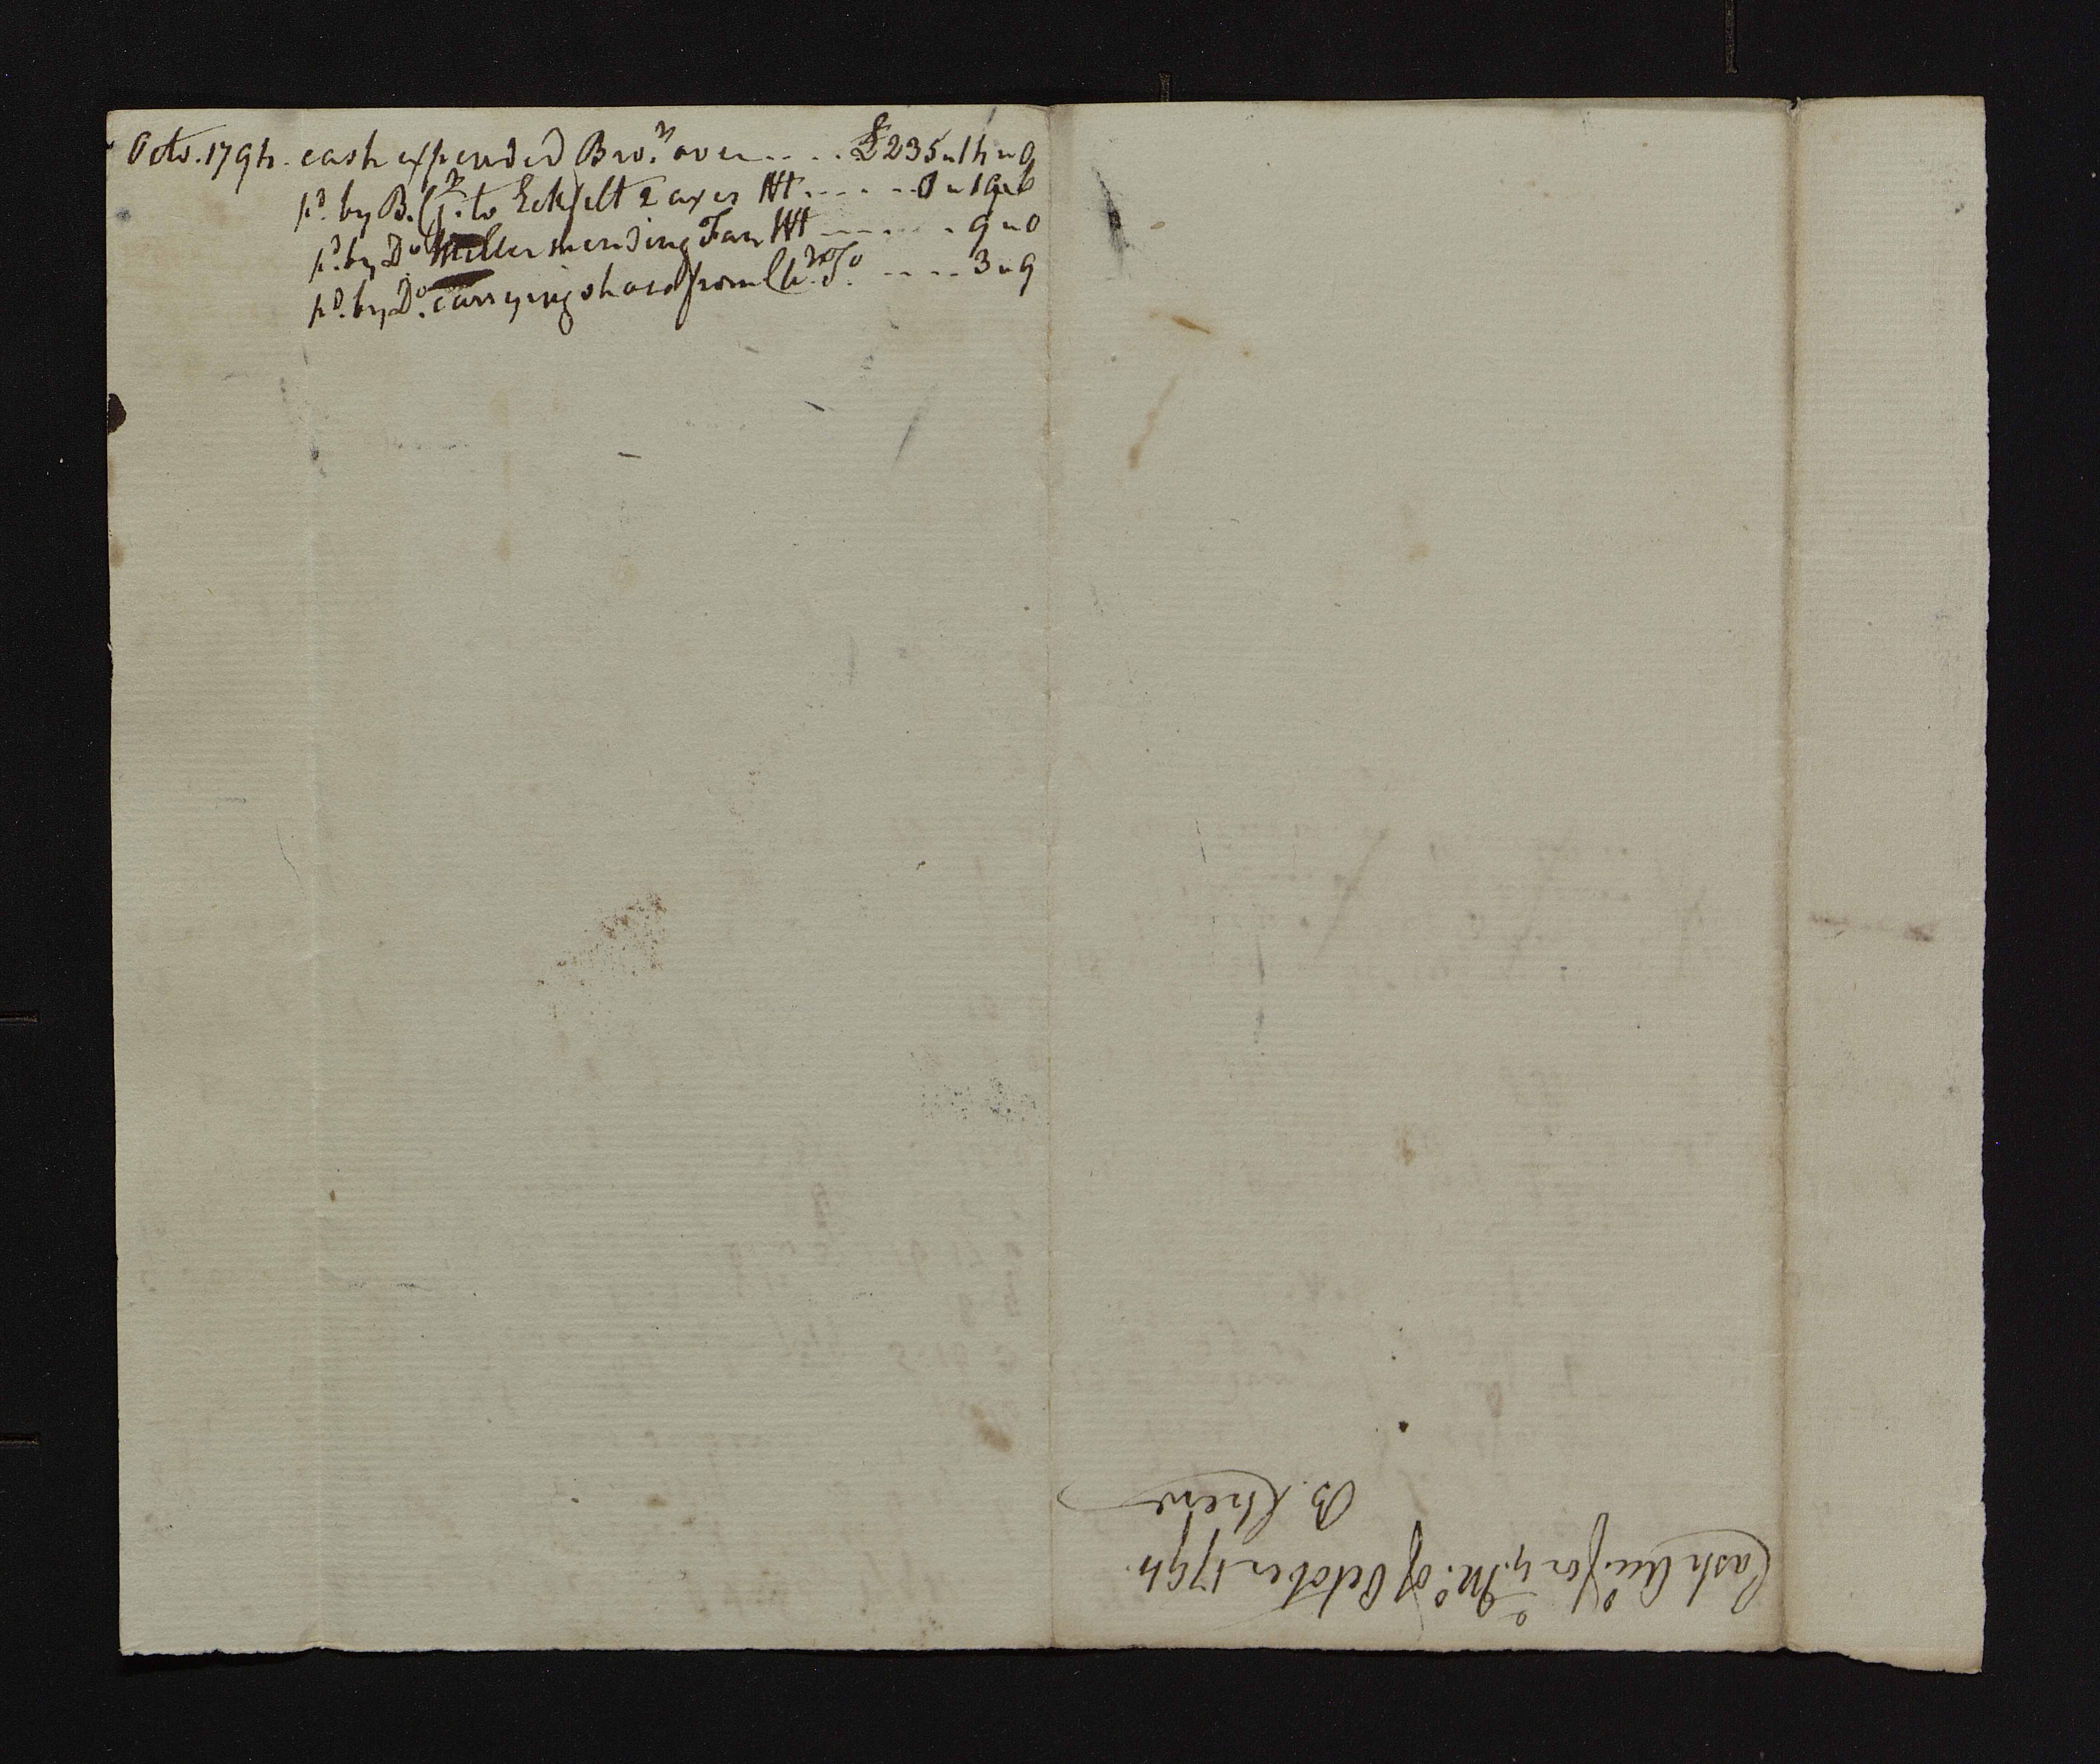 Octo. 1794. cash expended Bro.t over .... £235"14"9
pd. by B. C. to Eckfelt 2 axes Ht ..... 1"19"6
pd. by Do. Miller mending Fan Ht ...... 9"0
pd. by Do. carrying from .... 3"9
Cash Acct. for ye. Mo. of October 1794.
B. Chew